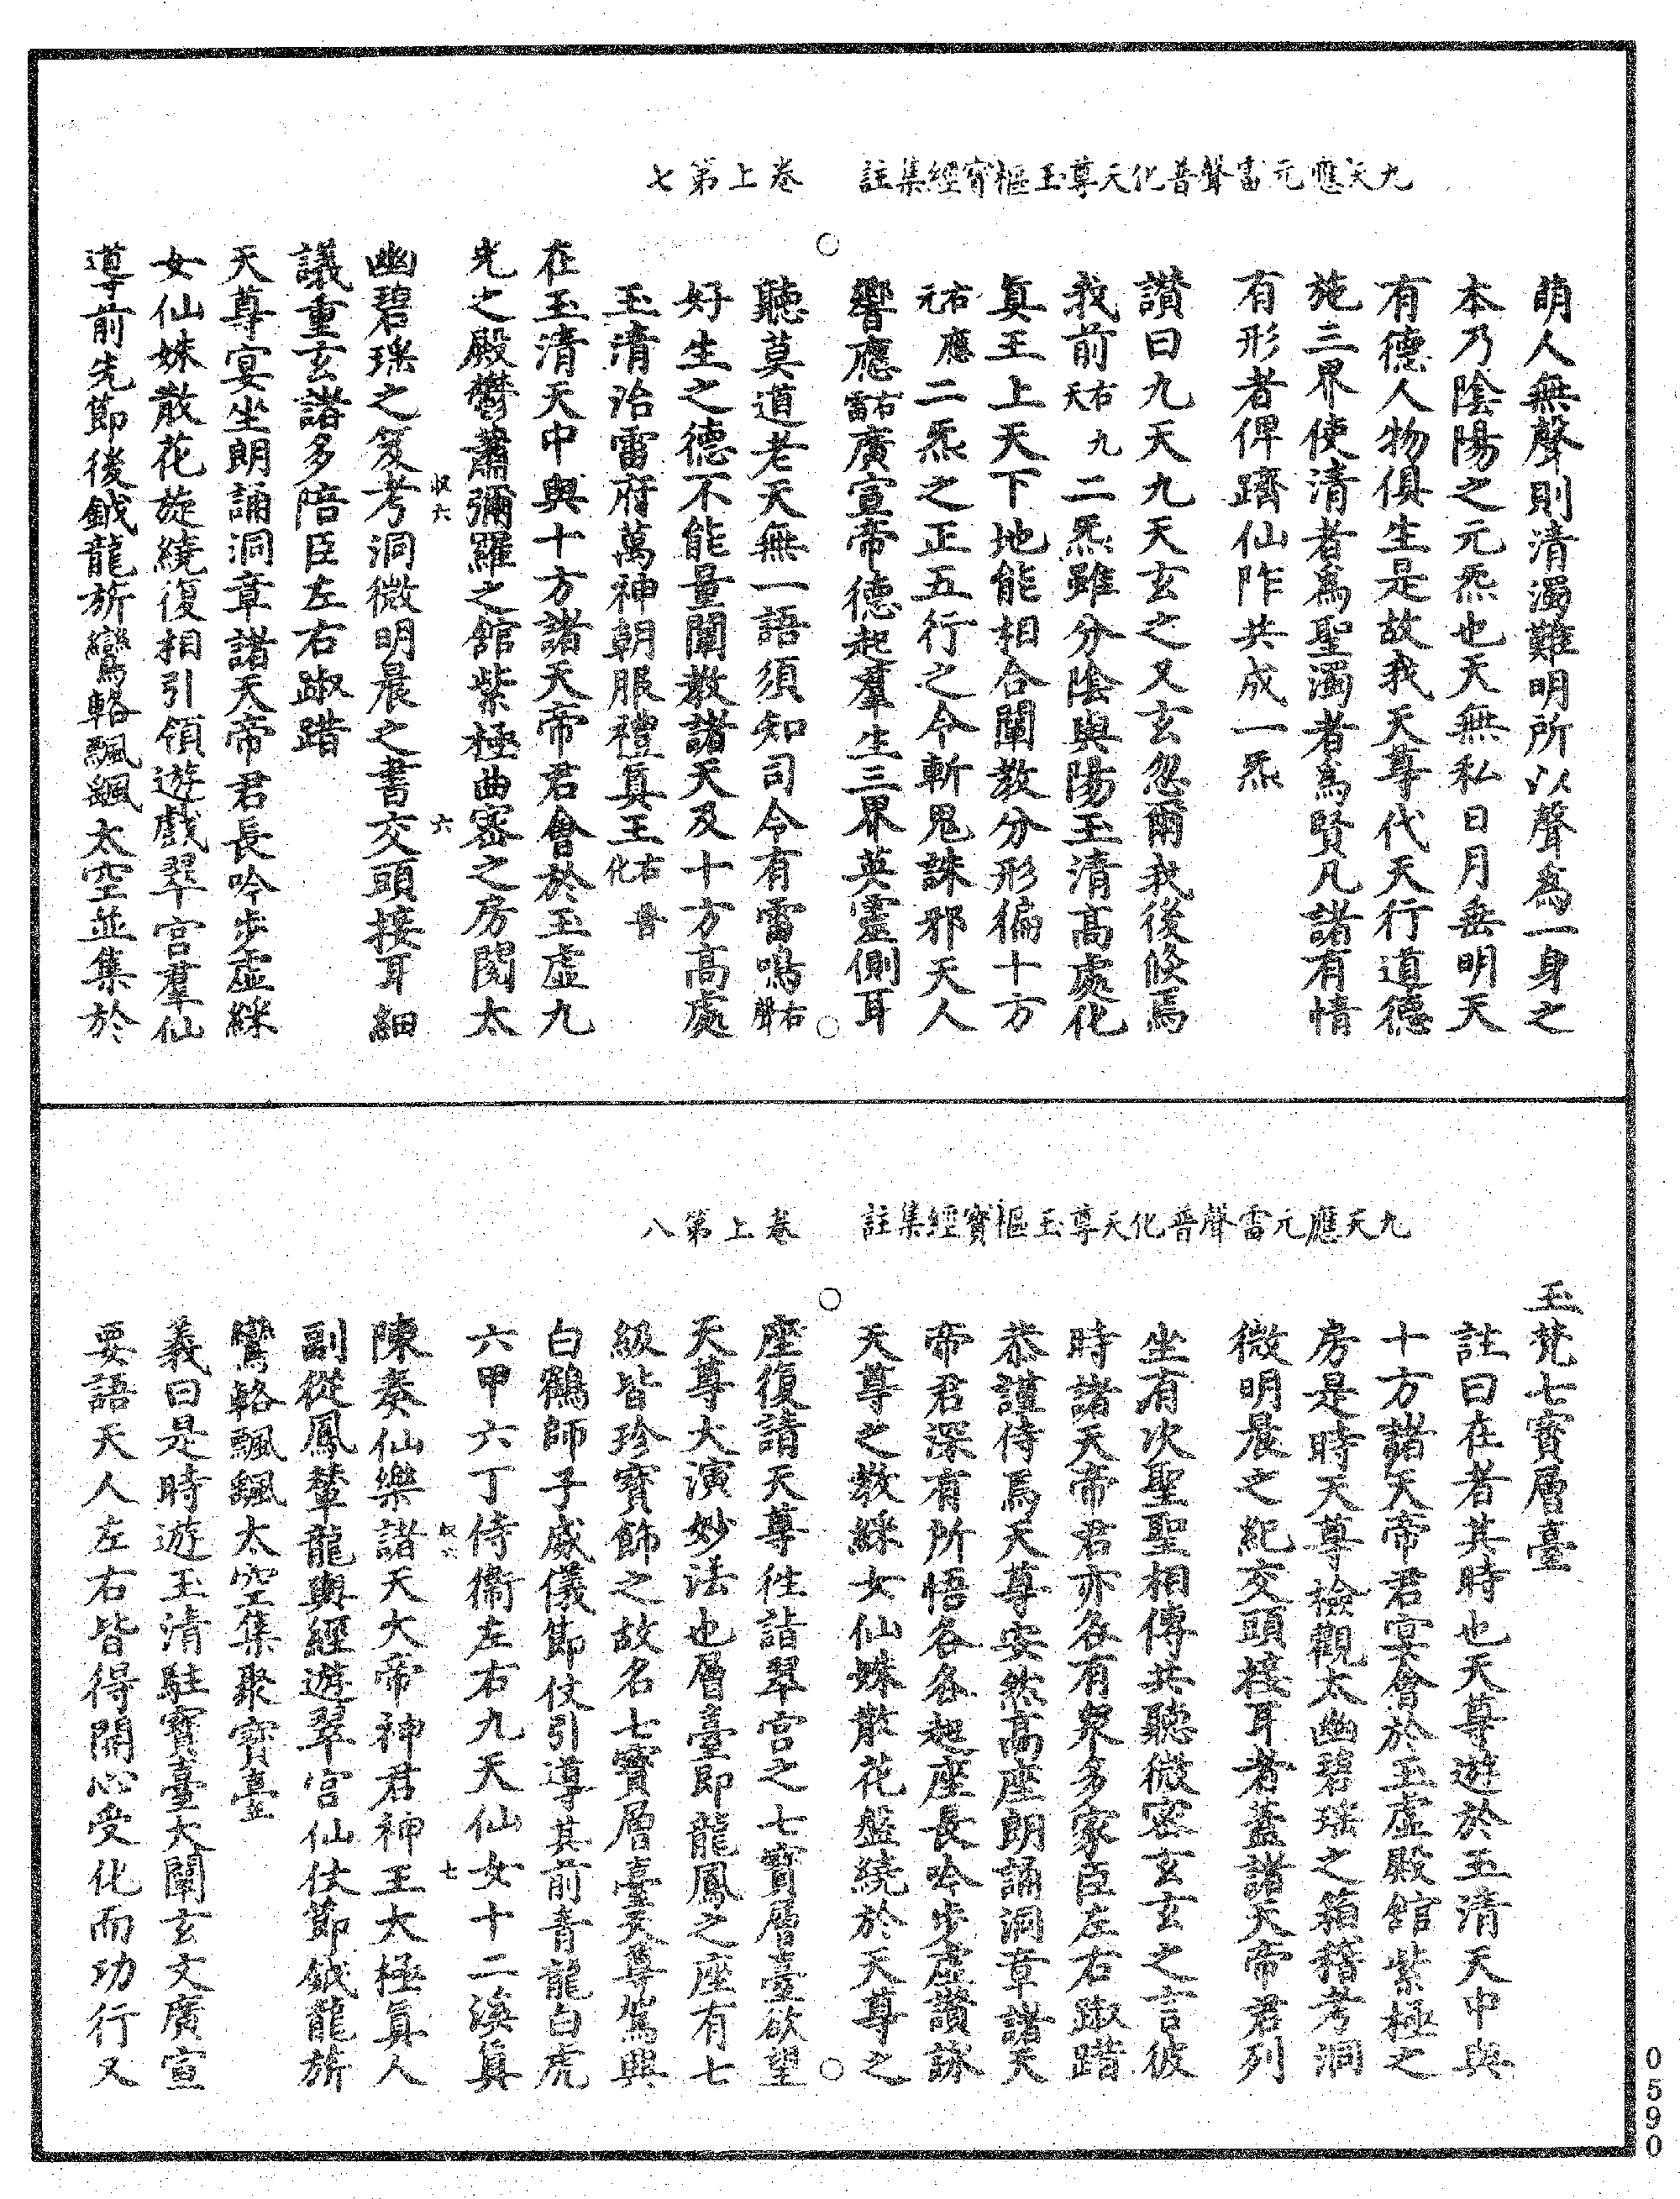 九天應元雷聲普化天尊玉樞寶經集註　卷上第七
萌人無聲則清濁難明所以聲為一身之
本乃陰陽之元炁也天無私日月垂明天
有德人物俱生是故我天尊代天行道德
施三界使清者為聖濁者為賢凡諸有情
有形者俾躋仙阼共成一炁
讃曰九天九天玄之又玄忽爾我後倐焉
我前右九天二炁雖分陰與陽玉清高處化
真王上天下地能相合闡教分形徧十方
右應元二炁之正五行之令斬鬼誅邪天人
響應右雷廣宣帝德起羣生三界英靈側耳
聽莫道老天無一語須知司令有雷鳴右聲
好生之德不能量闡教諸天及十方高處
玉清治雷府萬神朝服禮真王右普化
在玉清天中與十方諸天帝君會於玉虛九
光之殿鬱蕭彌羅之館紫極曲密之房閱太
幽碧瑤之笈考洞微明晨之書交頭接耳細
議重玄諸多陪臣左右踧踖
天尊宴坐朗誦洞章諸天帝君長吟步虛綵
女仙姝散花旋繞復相引領遊戲翠宮羣仙
導前先節後鉞龍旂鸞輅飄颻太空並集於
九天應元雷聲普化天尊玉樞寶經集註　卷上第八
玉梵七寶層臺
註曰在者其時也天尊遊於玉清天中與
十方諸天帝君宴會於玉虛殿館紫極之
房是時天尊檢觀太幽碧瑤之箱稽考洞
微明晨之紀交頭接耳者蓋諸天帝君列
坐有次聖聖相傳共聽微密玄玄之言彼
時諸天帝君亦各有衆多家臣左右踧踖
恭謹侍焉天尊安然高座朗誦洞章諸天
帝君深有所悟各各起座長吟步虛讃詠
天尊之教綵女仙姝散花盤繞於天尊之
座復請天尊徃詣翠宮之七寶層臺欲望
天尊大演妙法也層臺即龍鳳之座有七
級皆珍寶飾之故名七寶層臺天尊駕興
白鶴師子威儀節仗引導其前青龍白虎
六甲六丁侍衞左右九天仙女十二溪真
陳奏仙樂諸天大帝神君神王太極真人
副從鳳輦龍輿經遊翠宮仙仗節鉞龍旂
鸞輅飄颻太空集聚寶臺
義曰是時遊玉清駐寶臺大闡玄文廣宣
要語天人左右皆得開心受化而功行又
0590